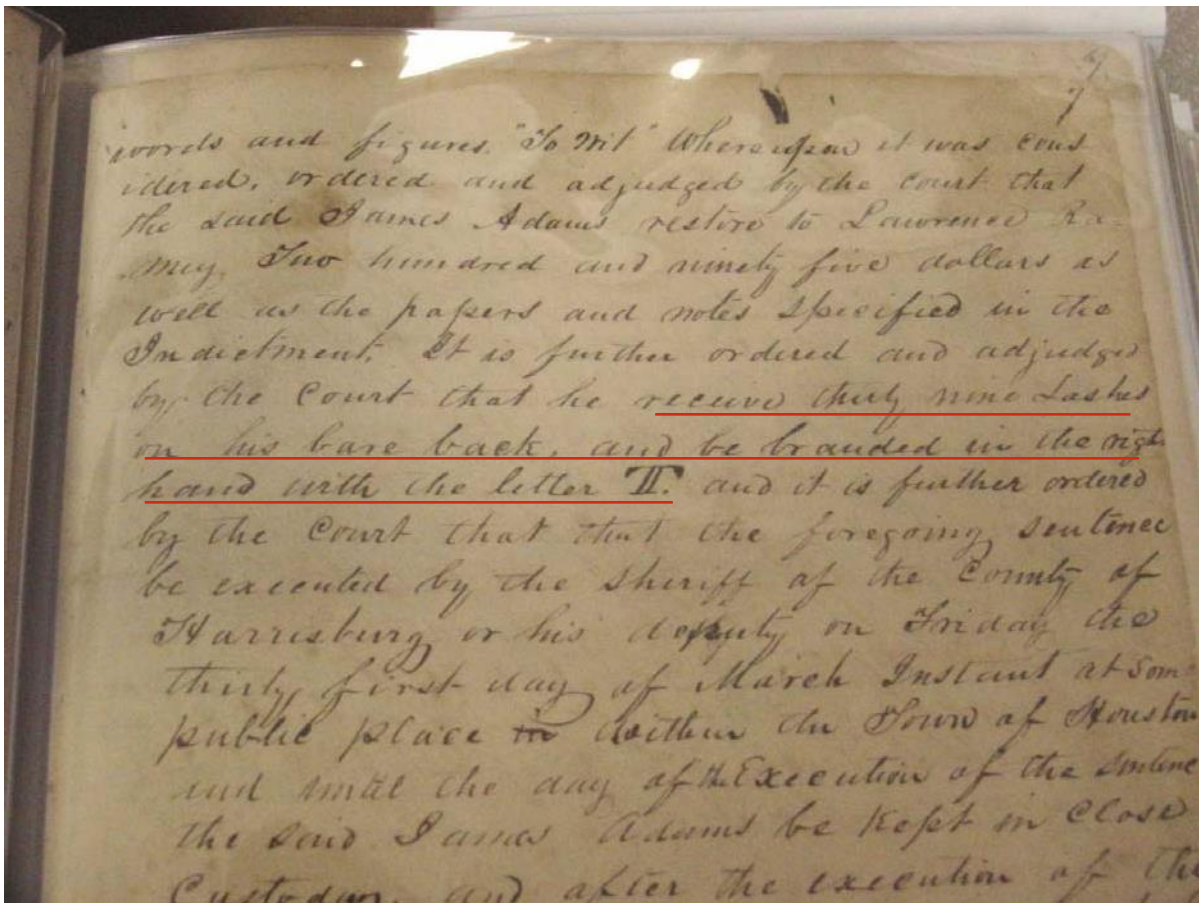 7
words and figures. "To Wit" Whereupon it was cons
idered, ordered and adjudged by the Court that
the said James Adams restore to Lawrence Ra-
mey, Two hundred and ninety five dollars as
well as the papers and notes specified in the
Indictment. It is further ordered and adjudged
by the Court that he receive thirty nine Lashes
on his bare back, and be branded in the right
hand with the letter T. and it is further ordered
by the Court that that the foregoing sentence
be executed by the Sheriff of the County of
Harrisburg or his deputy on Friday the
thirty first day of March Instant at some
public place in within the Town of Houston
and until the day of the Execution of the sentence
the said James Adams be Kept in Close
Custody, and after the execution of the